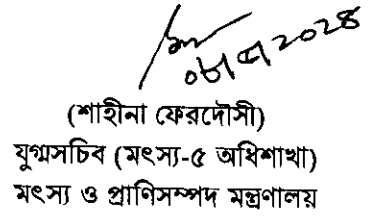 ০৮/৭/২০২৪
(শাহীনা ফেরদৌসী)
যুগ্মসচিব (মৎস্য-৫ অধিশাখা)
মৎস্য ও প্রাণিসম্পদ মন্ত্রণালয়